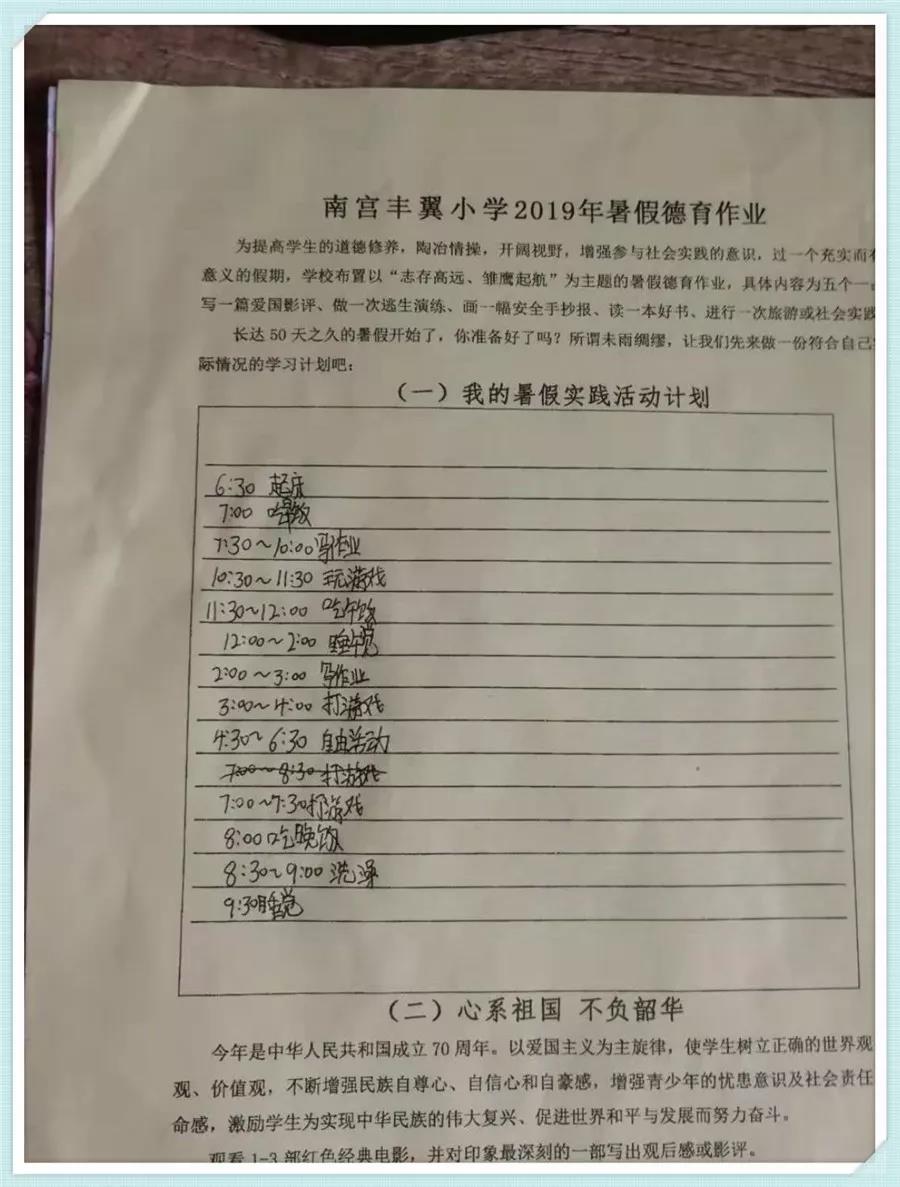 南宫丰翼小学2019年暑假德育作业
为提高学生的道德修养，陶冶情操，开阔视野，增强参与社会实践的意识，过一个充实而有
意义的假期，学校布置以“志存高远、雏鹰起航”为主题的暑假德育作业，具体内容为五个一：
写一篇爱国影评、做一次逃生演练、画一幅安全手抄报、读一本好书、进行一次旅游或社会实践
长达50天之久的暑假开始了，你准备好了吗？所谓未雨绸缪，让我们先来做一份符合自己
际情况的学习计划吧：
（一）我的暑假实践活动计划
6:30 起床
7:00 吃早饭
7:30～10:00写作业
10:30～11:30 玩游戏
11:30～12:00 吃午饭
12:00～2:00 睡午觉
2:00～3:00 写作业
3:00～4:00 打游戏
4:30～6:30 自由活动
7:00～8:30 打游戏
7:00～7:30打游戏
8:00吃晚饭
8:30～9:00 洗澡
9:30睡觉
（二）心系祖国 不负韶华
今年是中华人民共和国成立70周年。以爱国主义为主旋律，使学生树立正确的世界观
观、价值观，不断增强民族自尊心、自信心和自豪感，增强青少年的忧患意识及社会责任
命感，激励学生为实现中华民族的伟大复兴、促进世界和平与发展而努力奋斗。
观看1-3部红色经典电影，并对印象最深刻的一部写出观后感或影评。